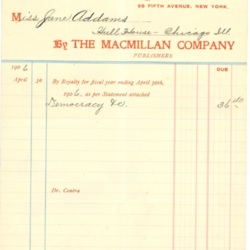 66 FIFTH AVENUE, NEW YORK,
Miss Jane Addams
Hull House - Chicago Ill.
By THE MACMILLAN COMPANY
PUBLISHERS
1906 DUE
April 30 By Royalty for fiscal year ending April 30th,
1906, as per Statement attached
Democracy &c. 36
Dr. Contra